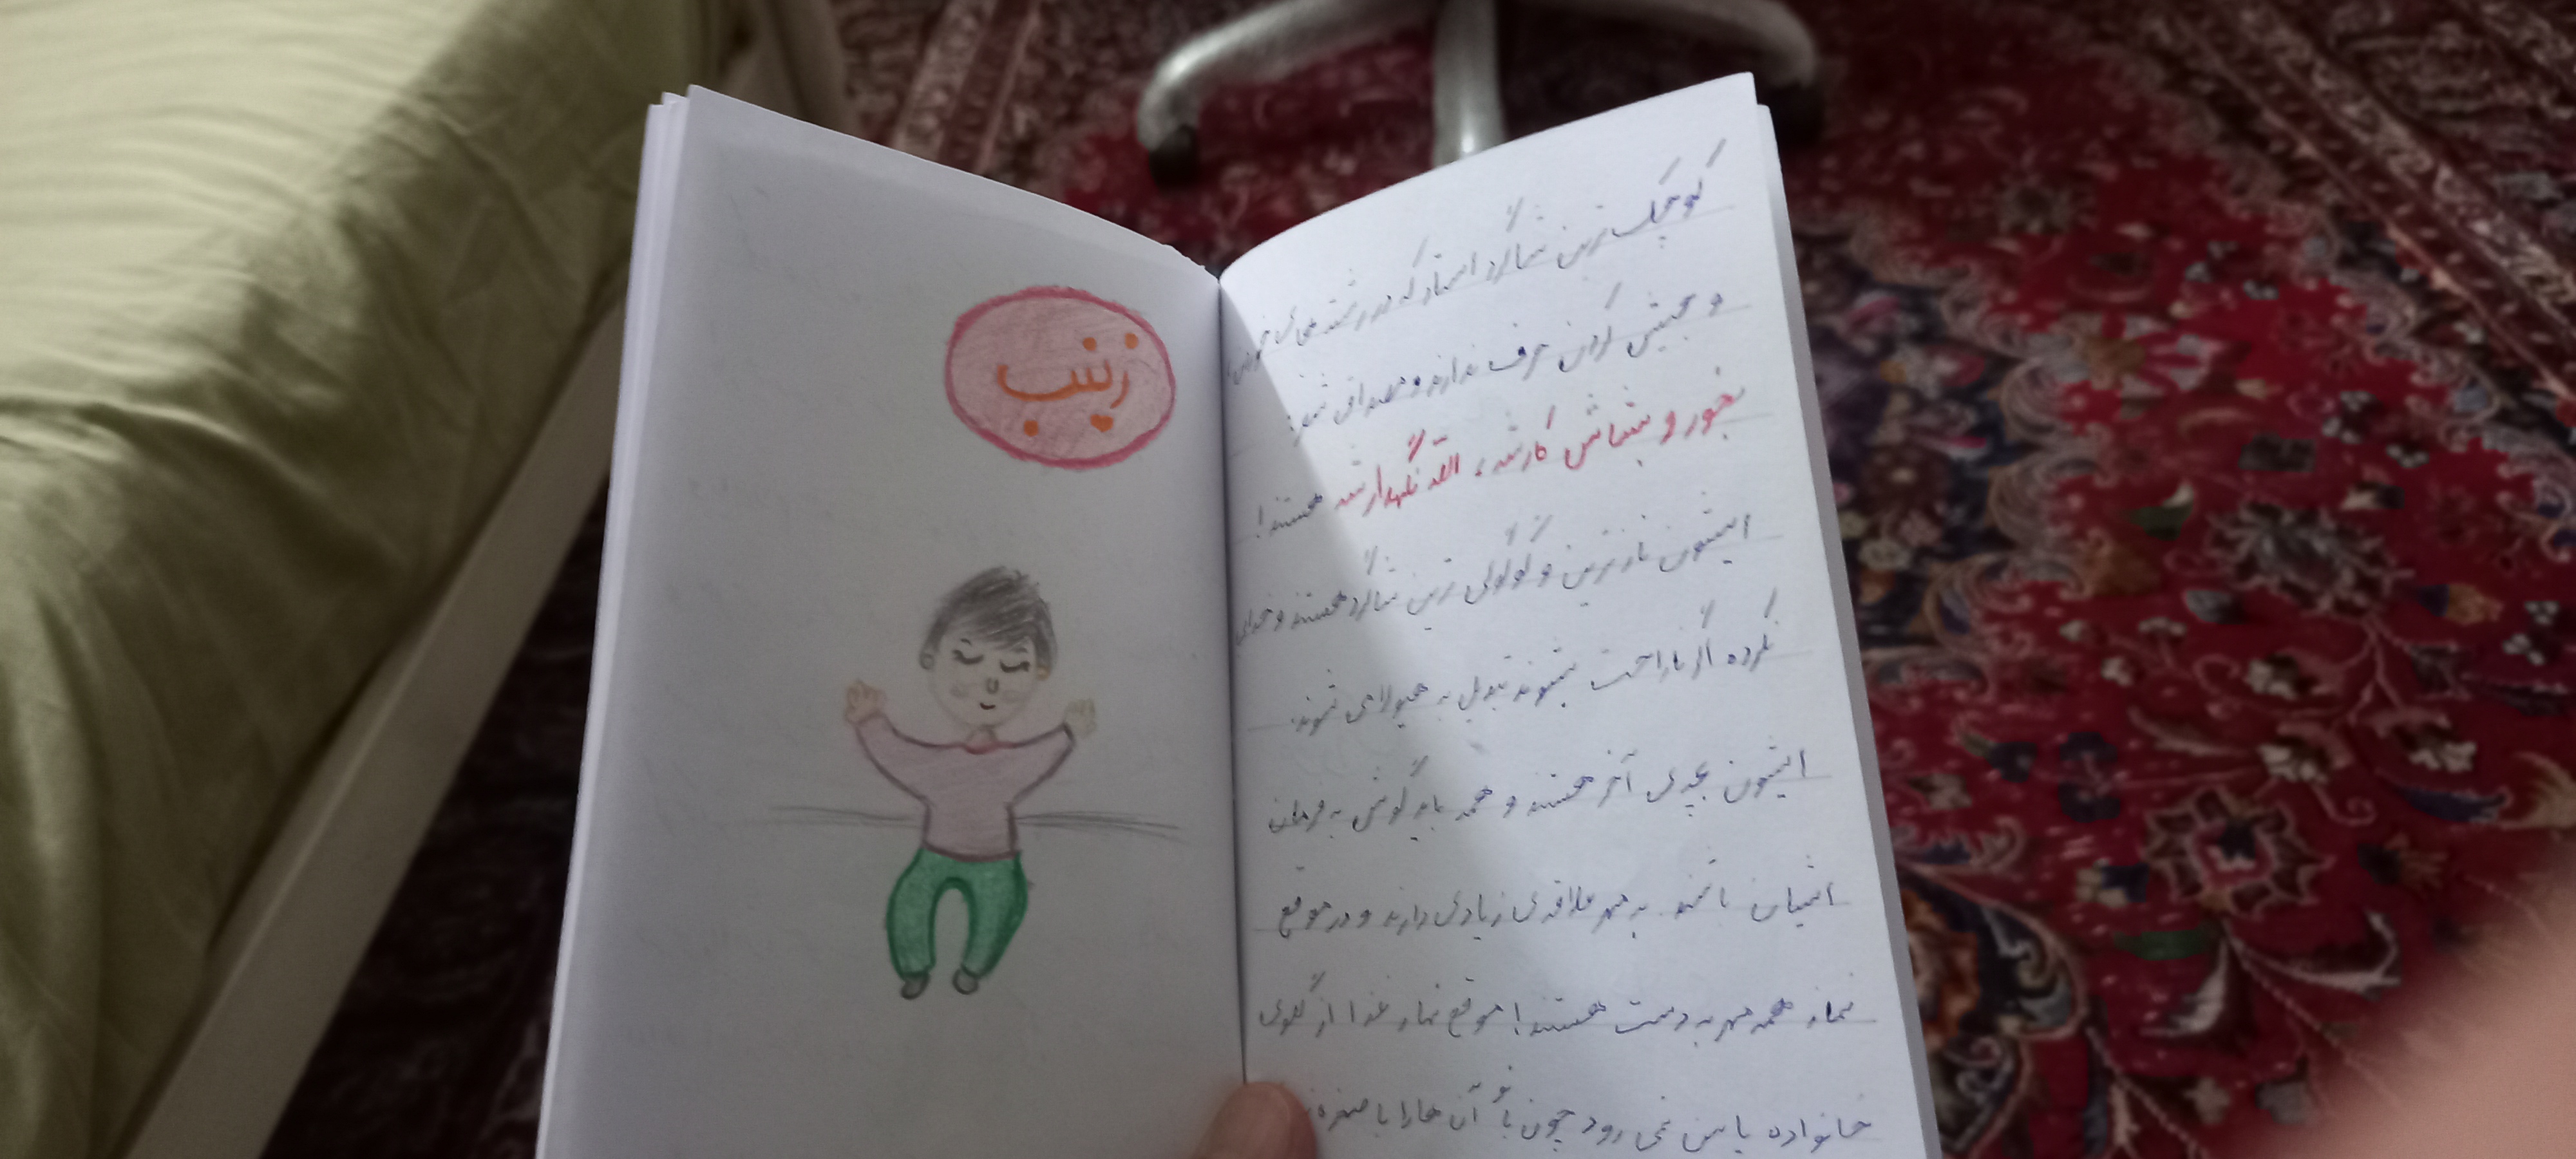 زینب
کوچک ترین شاگرد استاد که در رشته های خوردن
و جیش کردن حرف ندارند و مصداق شعر:
بخور و بشاش کارشه، الله نگهدارشه هستند!
ایشون ناز ترین و گوگولی ترین شاگرد هستند و خدای
نکرده اگر ناراحت بشوند تبدیل به هیولا می شوند.
ایشون بچه ی آخر هستند و همه باید گوش به فرمان
ایشان باشند. به مهر علاقه ی زیادی دارند و در موقع
نماز همه مهر به دست هستند! موقع نهار غذا از گلوی
خانواده پایین نمی رود چون آن ها را با